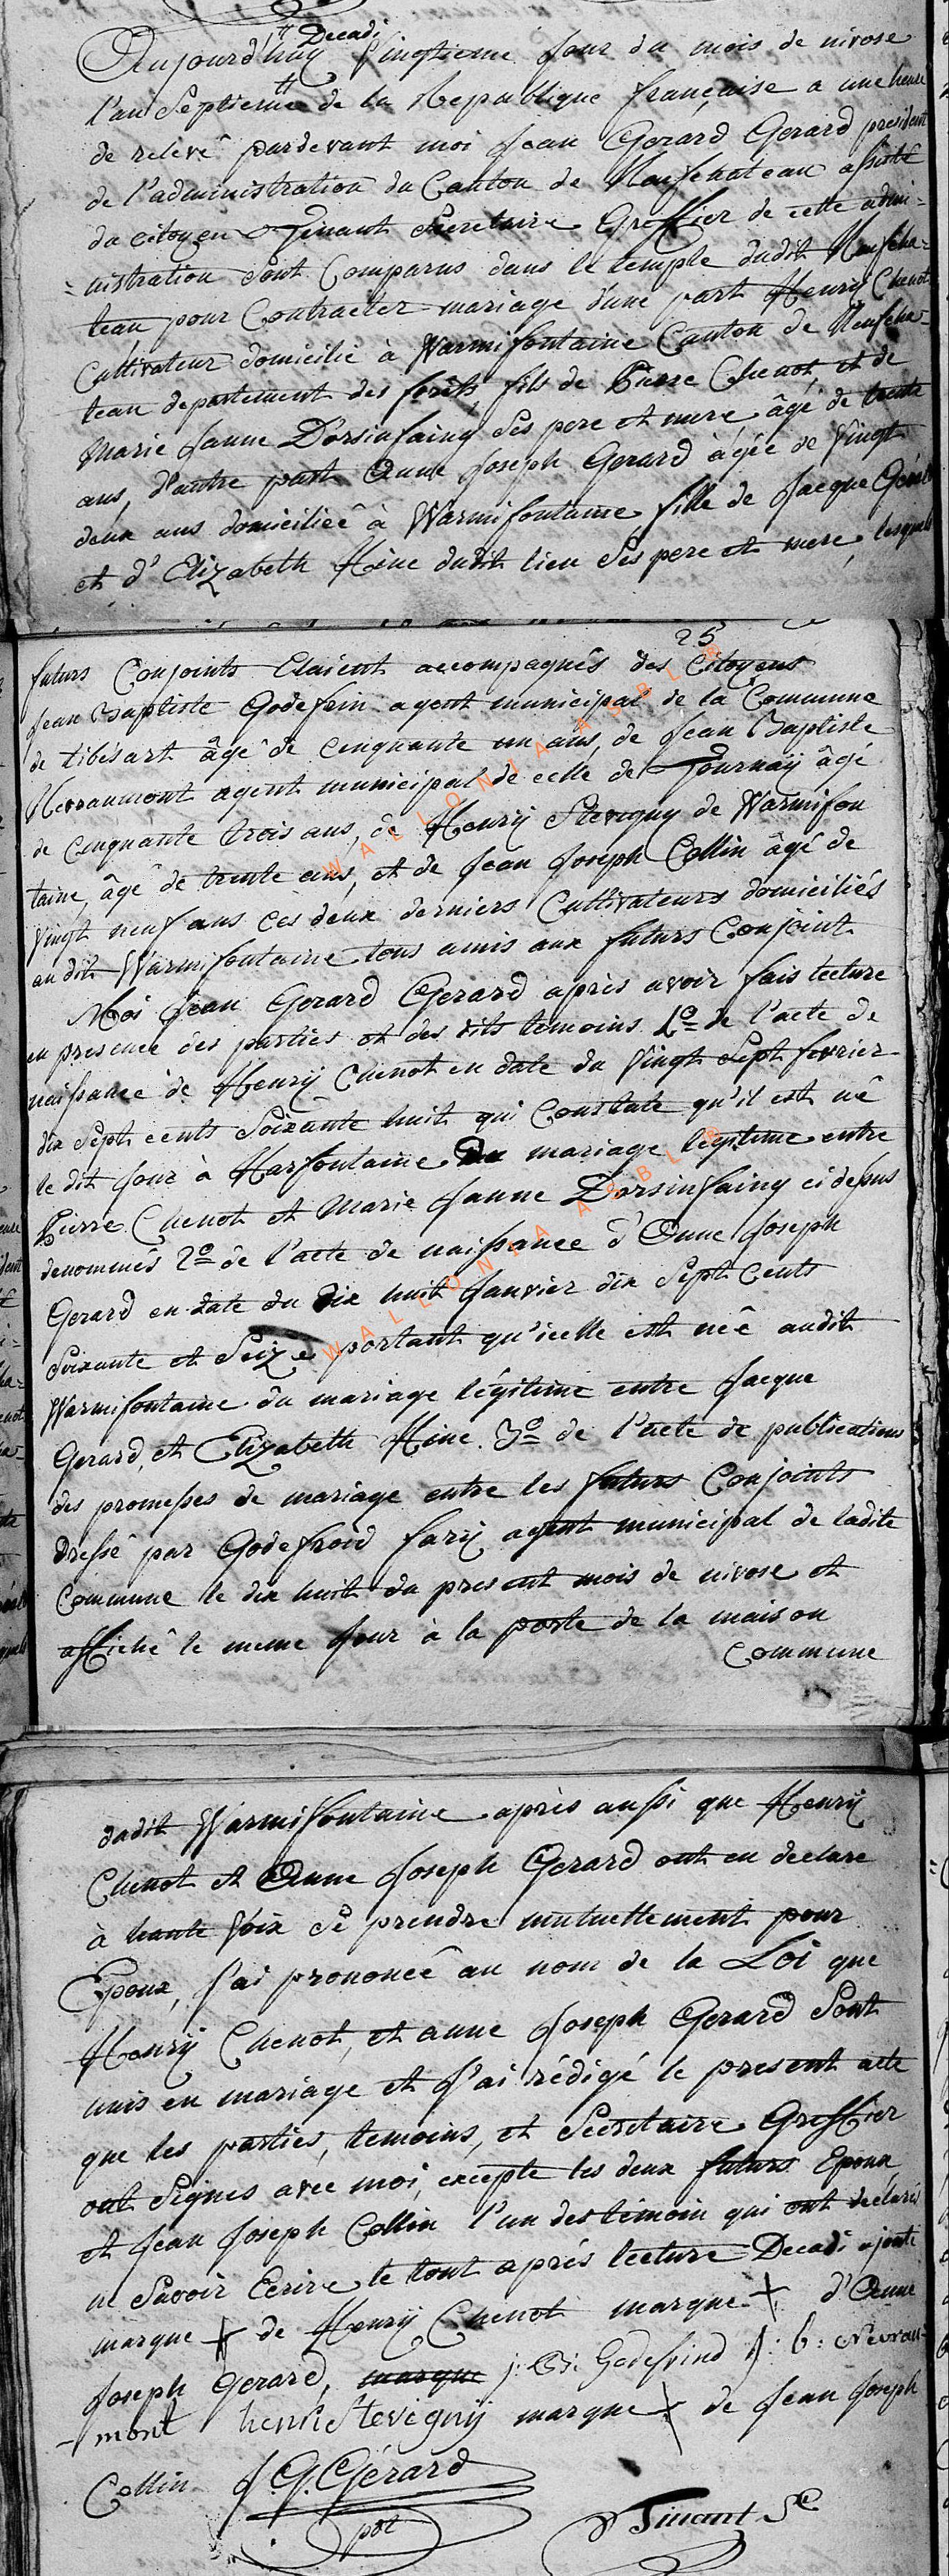 Decadi
Aujourd'huy Vingtieme Jour du mois de nivose
l'an Septieme de la Republique française a une heure
de relevê pardevant moi Jean Gerard Gerard president
de l'administration du Canton de Neufchateau assisté
du citoyen Tinant Secretaire Greffier de cette admi-
nistration sont Comparus dans le temple dudit Neufcha-
teau pour Contracter mariage d'une part Henry Chenot
Cultivateur domicilié à Warmifontaine Canton de Neufcha-
teau departement des forêts, fils de Pierre Chenot, et de
Marie Janne Dorsinfaing ses pere et mere, âgé de trente
ans, d'autre part Anne Joseph Gerard âgée de Vingt
deux ans domiciliée à Warmifontaine fille de Jacque Gerard
et d'Elizabeth Hine dudit lieu Ses pere et mere, lesquels
25
futurs Conjoints Etaient accompagnés des Citoyens
Jean Baptiste Godefrin agent municipal de la Commune
de tibesart âgê de cinquante un ans, de Jean Baptiste
Nevraumont agent municipal de celle de Tournay âgé
de cinquante trois ans, de Henry Stevigny de Warmifon
taine, âgê de trente ans, et de Jean Joseph Collin âgé de
Vingt neuf ans ces deux derniers Cultivateurs domiciliés
audit Warmifontaine tous amis aux futurs Conjoint
Moi Jean Gerard Gerard après avoir fais lecture
en presence des parties et des dits temoins 1º de l'acte de
naissance de Henry Chenot en date du Vingt Sept fevrier
dix Sept cents Soixante huit qui Constate qu'il est nê
le dit Jour à Harfontaine Du mariage legitime entre
Pierre Chenot et Marie Janne Dorsinfaing ci dessus
denommés 2º de l'acte de naissance d'Anne Joseph
Gerard en date du dix huit Janvier dix Sept Cents
Soixante et Seize portant qu'icelle est neê audit
Warmifontaine du mariage légitime entre Jacque
Gerard, et Elizabeth Hine. 3º de l'acte de publications
des promesses de mariage entre les futurs Conjoints
Dressê par Godefroid Jarij agent municipal de ladite
Commune le dix huit du present mois de nivose et
affichê le meme Jour à la porte de la maison
Commune
dudit Warmifontaine après aussi que Henrij
Chenot et Anne Joseph Gerard ont eu declare
à haute Voix Se prendre mutuellement pour
Epoux, J'ai prononcê au nom de la Loi que
Henrij Chenot, et anne Joseph Gerard Sont
unis en mariage et J'ai rédigé le present acte
que les parties, temoins, et Secretaire Greffier
ont Signés avec moi, excepte les deux futurs Epoux,
et Jean Joseph Collin l'un des temoin qui ont declarés
ne Savoir Ecrire le tout aprés lecture Decadi ajouté
marque + de Henrij Chenot marque + d'Anne
Joseph Gerard, marque j: B: Godefrind J: b: Nevrau-
mont henri Stevignij marque + de Jean Joseph
Collin J. G. Gérard
pdt Tinant Se
WALLONIA ASBL
WALLONIA ASBL